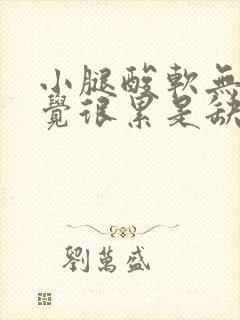 小腿酸軟無
覺很累是缺
劉萬盛